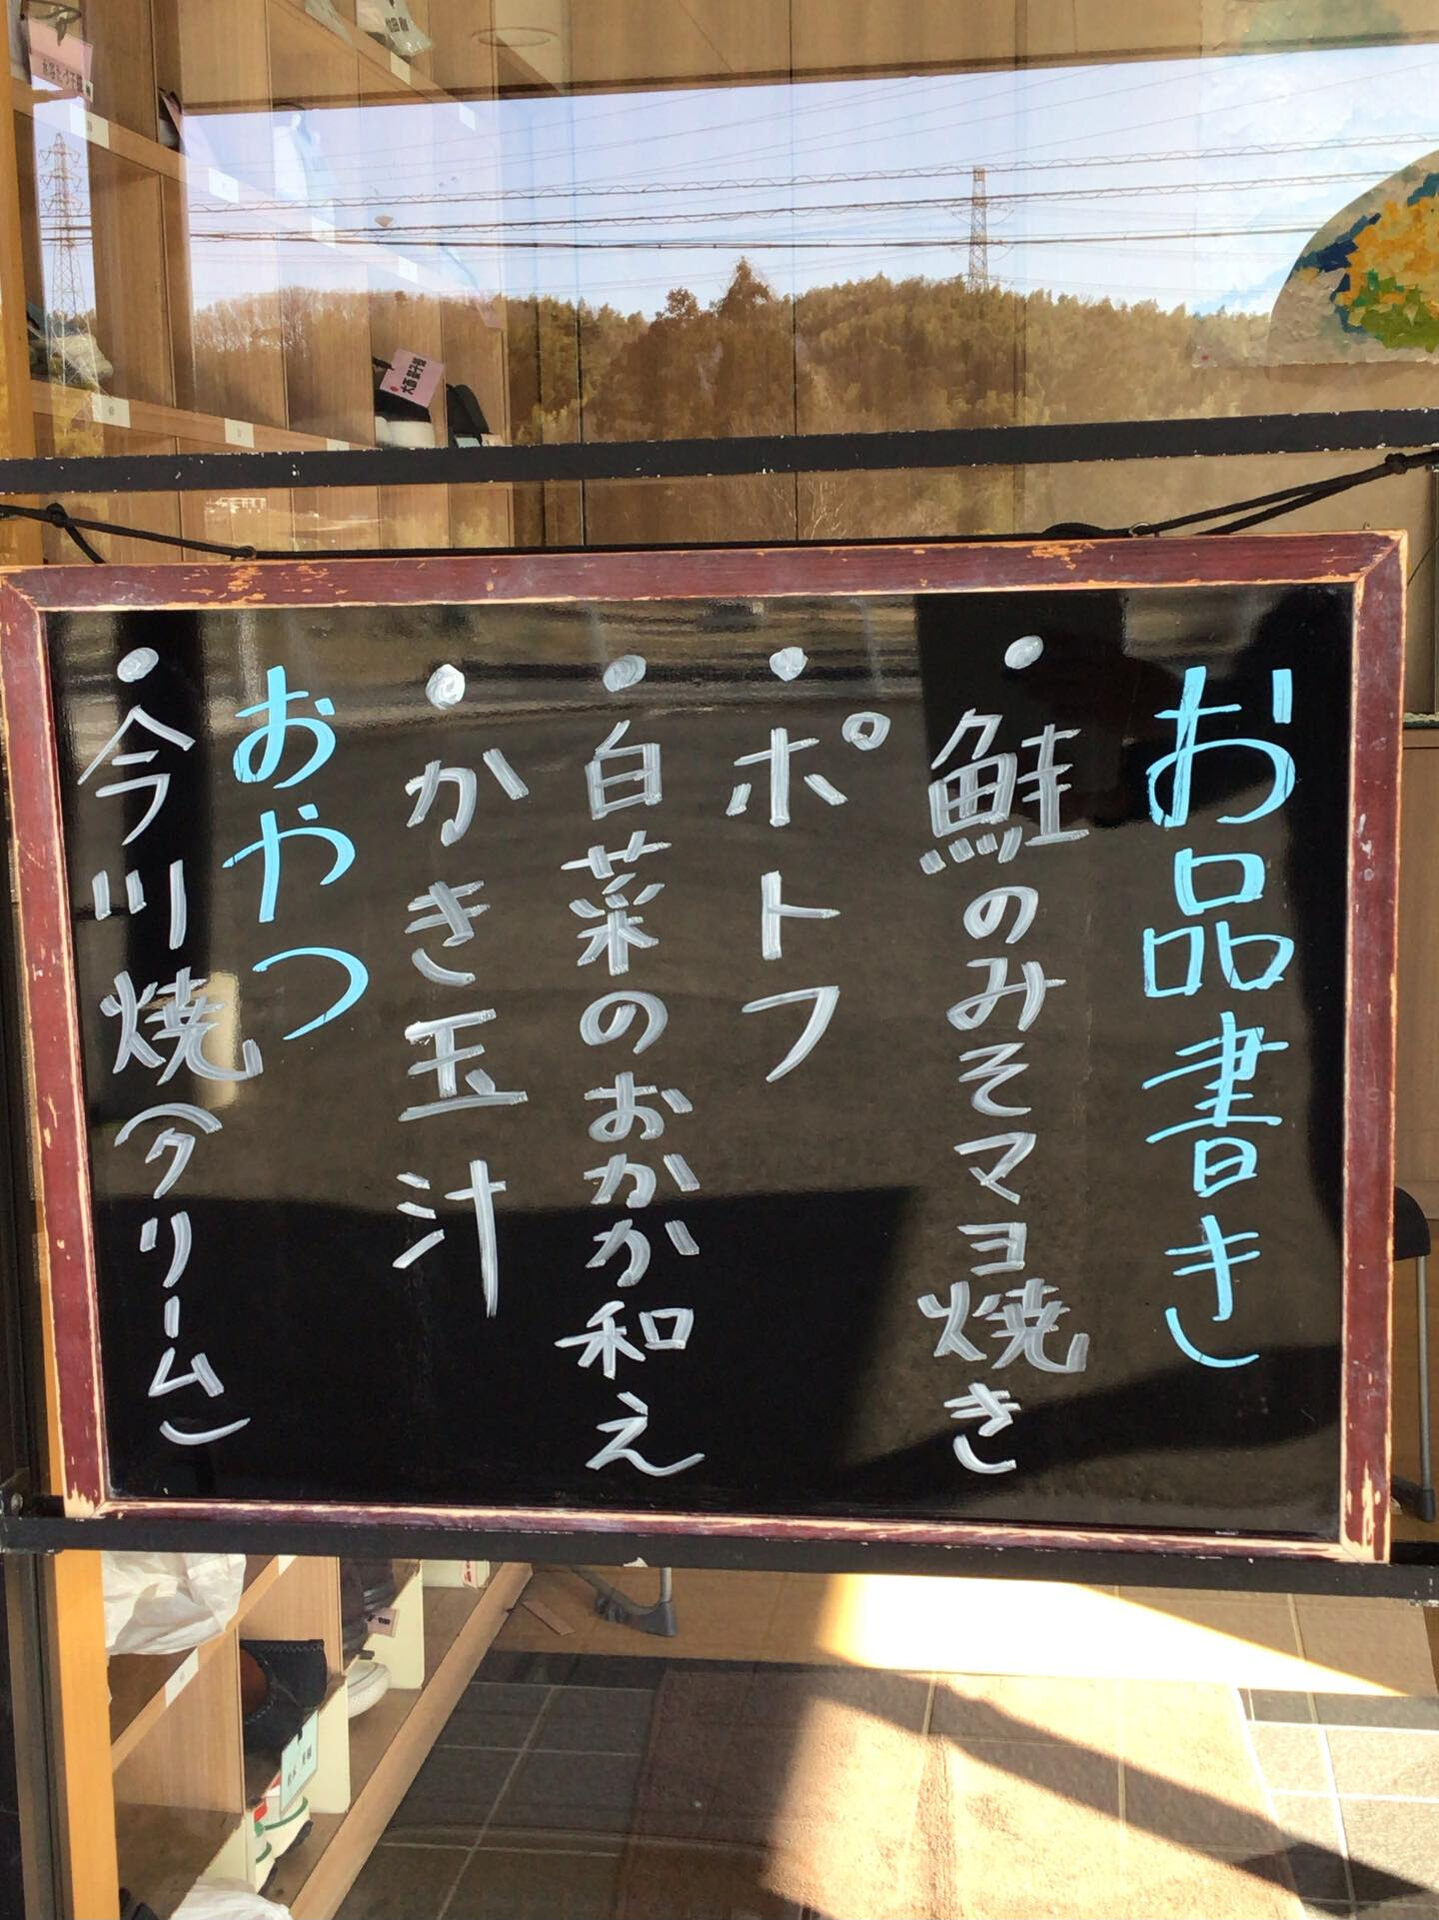 お品書き
・鮭のみそマヨ焼き
・ポトフ
・白菜のおかか和え
・かき玉汁
おやつ
・今川焼(クリーム)